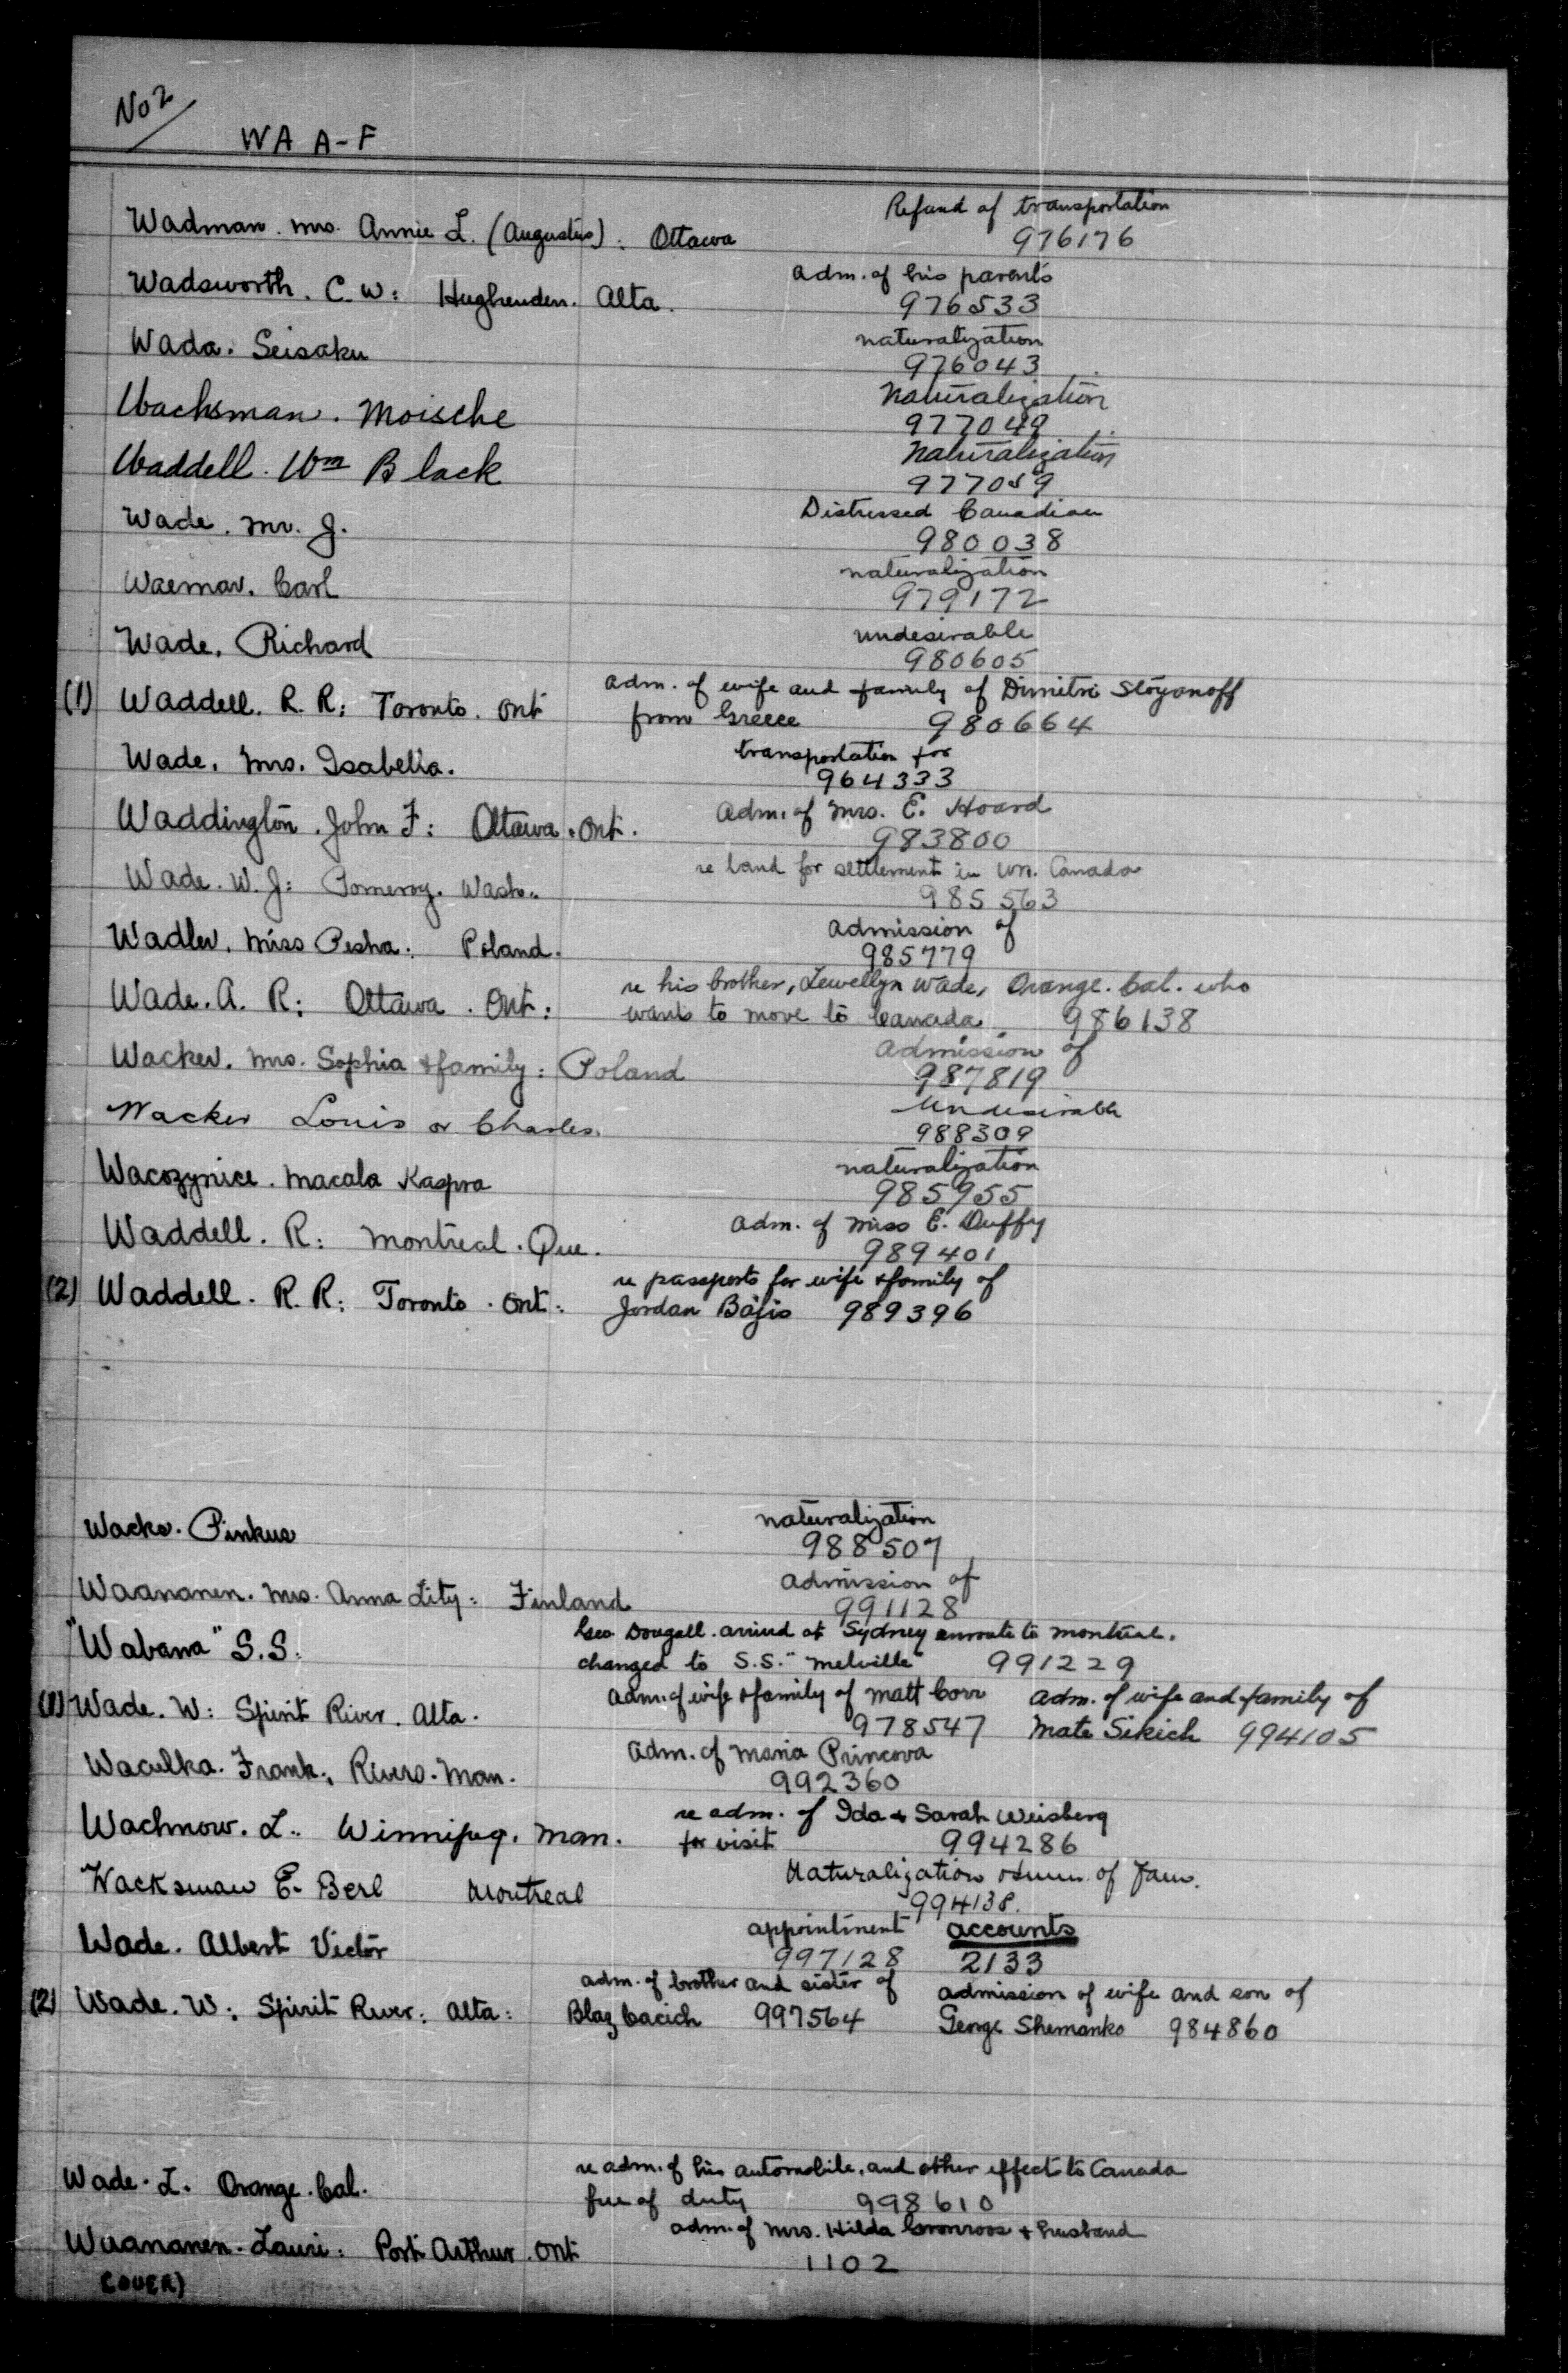 No 2
WA A-F
Refund of transportation
Wadman. Mrs. Annie L. (Augustus): Ottawa 976176
adm. of his parents
Wadsworth. C. W: Hughenden. Alta. 976533
naturalization
Wada. Seisaku 976043
Naturalization
Wachsman. Moische 977049
Naturalization
Waddell. Wm Black 977059
Distressed Canadian
Wade. Mr. J. 980038
naturalization
Waemar. Carl 979172
undesirable
Wade. Richard 980605
adm. of wife and family of Dimitri Stoyanoff
(1) Waddell. R. R: Toronto. Ont from Greece 980664
transportation for
Wade. Mrs. Isabella. 964333
Adm. of Mrs. E. Hoard
Waddington. John F: Ottawa. Ont. 983800
re land for settlement in Wn. Canada
Wade. W. J: Pomeroy. Wash. 985563
admission of
Wadler. Miss Pesha: Poland. 985779
re his brother, Lewellyn Wade, Orange. Cal. who
Wade. A. R: Ottawa. Ont: wants to move to Canada. 986138
admission of
Wacker. Mrs. Sophia & family: Poland 987819
Undesirable
Wacker Louis or Charles. 988309
naturalization
Wacozynice. Macala Kaspra 985955
adm. of Miss E. Duffy
Waddell. R: Montreal. Que. 989401
re passports for wife & family of
(2) Waddell. R. R: Toronto. Ont: Jordan Bajis 989396
naturalization
Wacks. Pinkus 988507
admission of
Waananen. Mrs. Anna Lity: Finland 991128
Geo Dougall. arrived at Sydney enroute to Montreal.
"Wabana" S.S: changed to S.S. "Melville" 991229
adm. of wife & family of Matt Corr adm. of wife and family of
(1) Wade. W: Spirit River. Alta. 978547 Mate Sikich 994105
adm. of Maria Princova
Waculka. Frank: Rivers. Man. 992360
re adm. of Ida & Sarah Weisberg
Wachnow. L. Winnipeg. Man. for visit 994286
Naturalization of
Wacksman E. Berl Montreal 994138.
appointment accounts
Wade. Albert Victor 997128 2133
adm. of brother and sister of admission of wife and son of
(2) Wade. W: Spirit River: Alta: Blaz Cacich 997564 George Shemanko 984860
re adm. of his automobile. and other effects to Canada
Wade. L. Orange. Cal. free of duty 998610
adm. of Mrs. Hilda Gronroos & husband
Waananen. Lauri: Port Arthur. Ont 1102
(OVER)